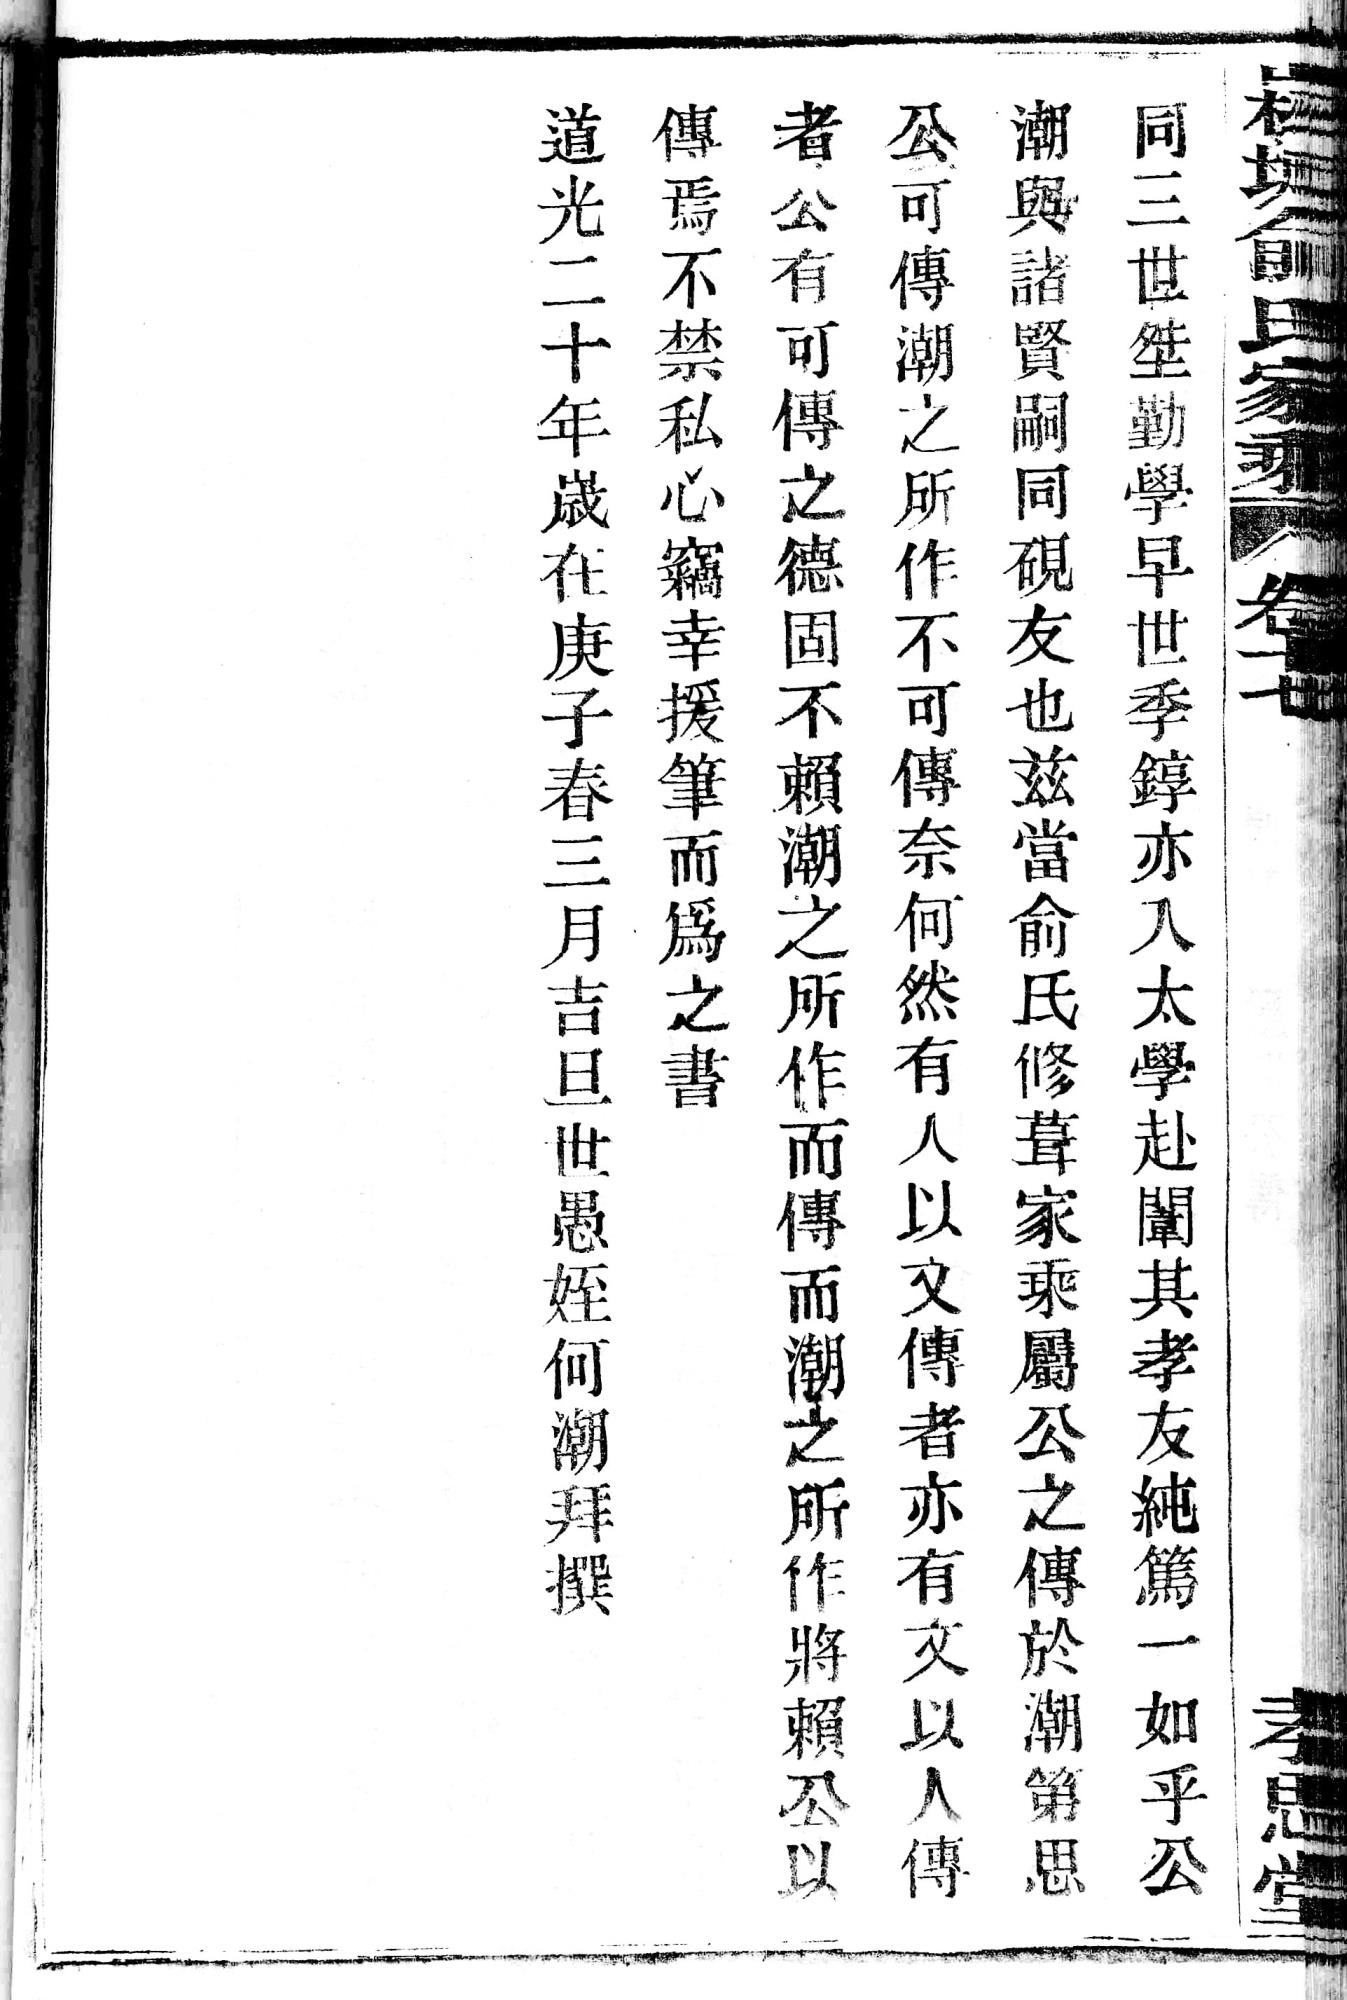 俞氏家乘 卷十七 孝思堂
同三世㘶勤學早世季錞亦入太學赴闈其孝友純篤一如乎公
潮與諸賢嗣同硯友也兹當俞氏修葺家乘屬公之傳於潮第思
公可傳潮之所作不可傳奈何然有人以文傳者亦有文以人傳
者公有可傳之德固不賴潮之所作而傳而潮之所作將賴公以
傳焉不禁私心竊幸援筆而爲之書
道光二十年歲在庚子春三月吉旦世愚姪何潮拜撰